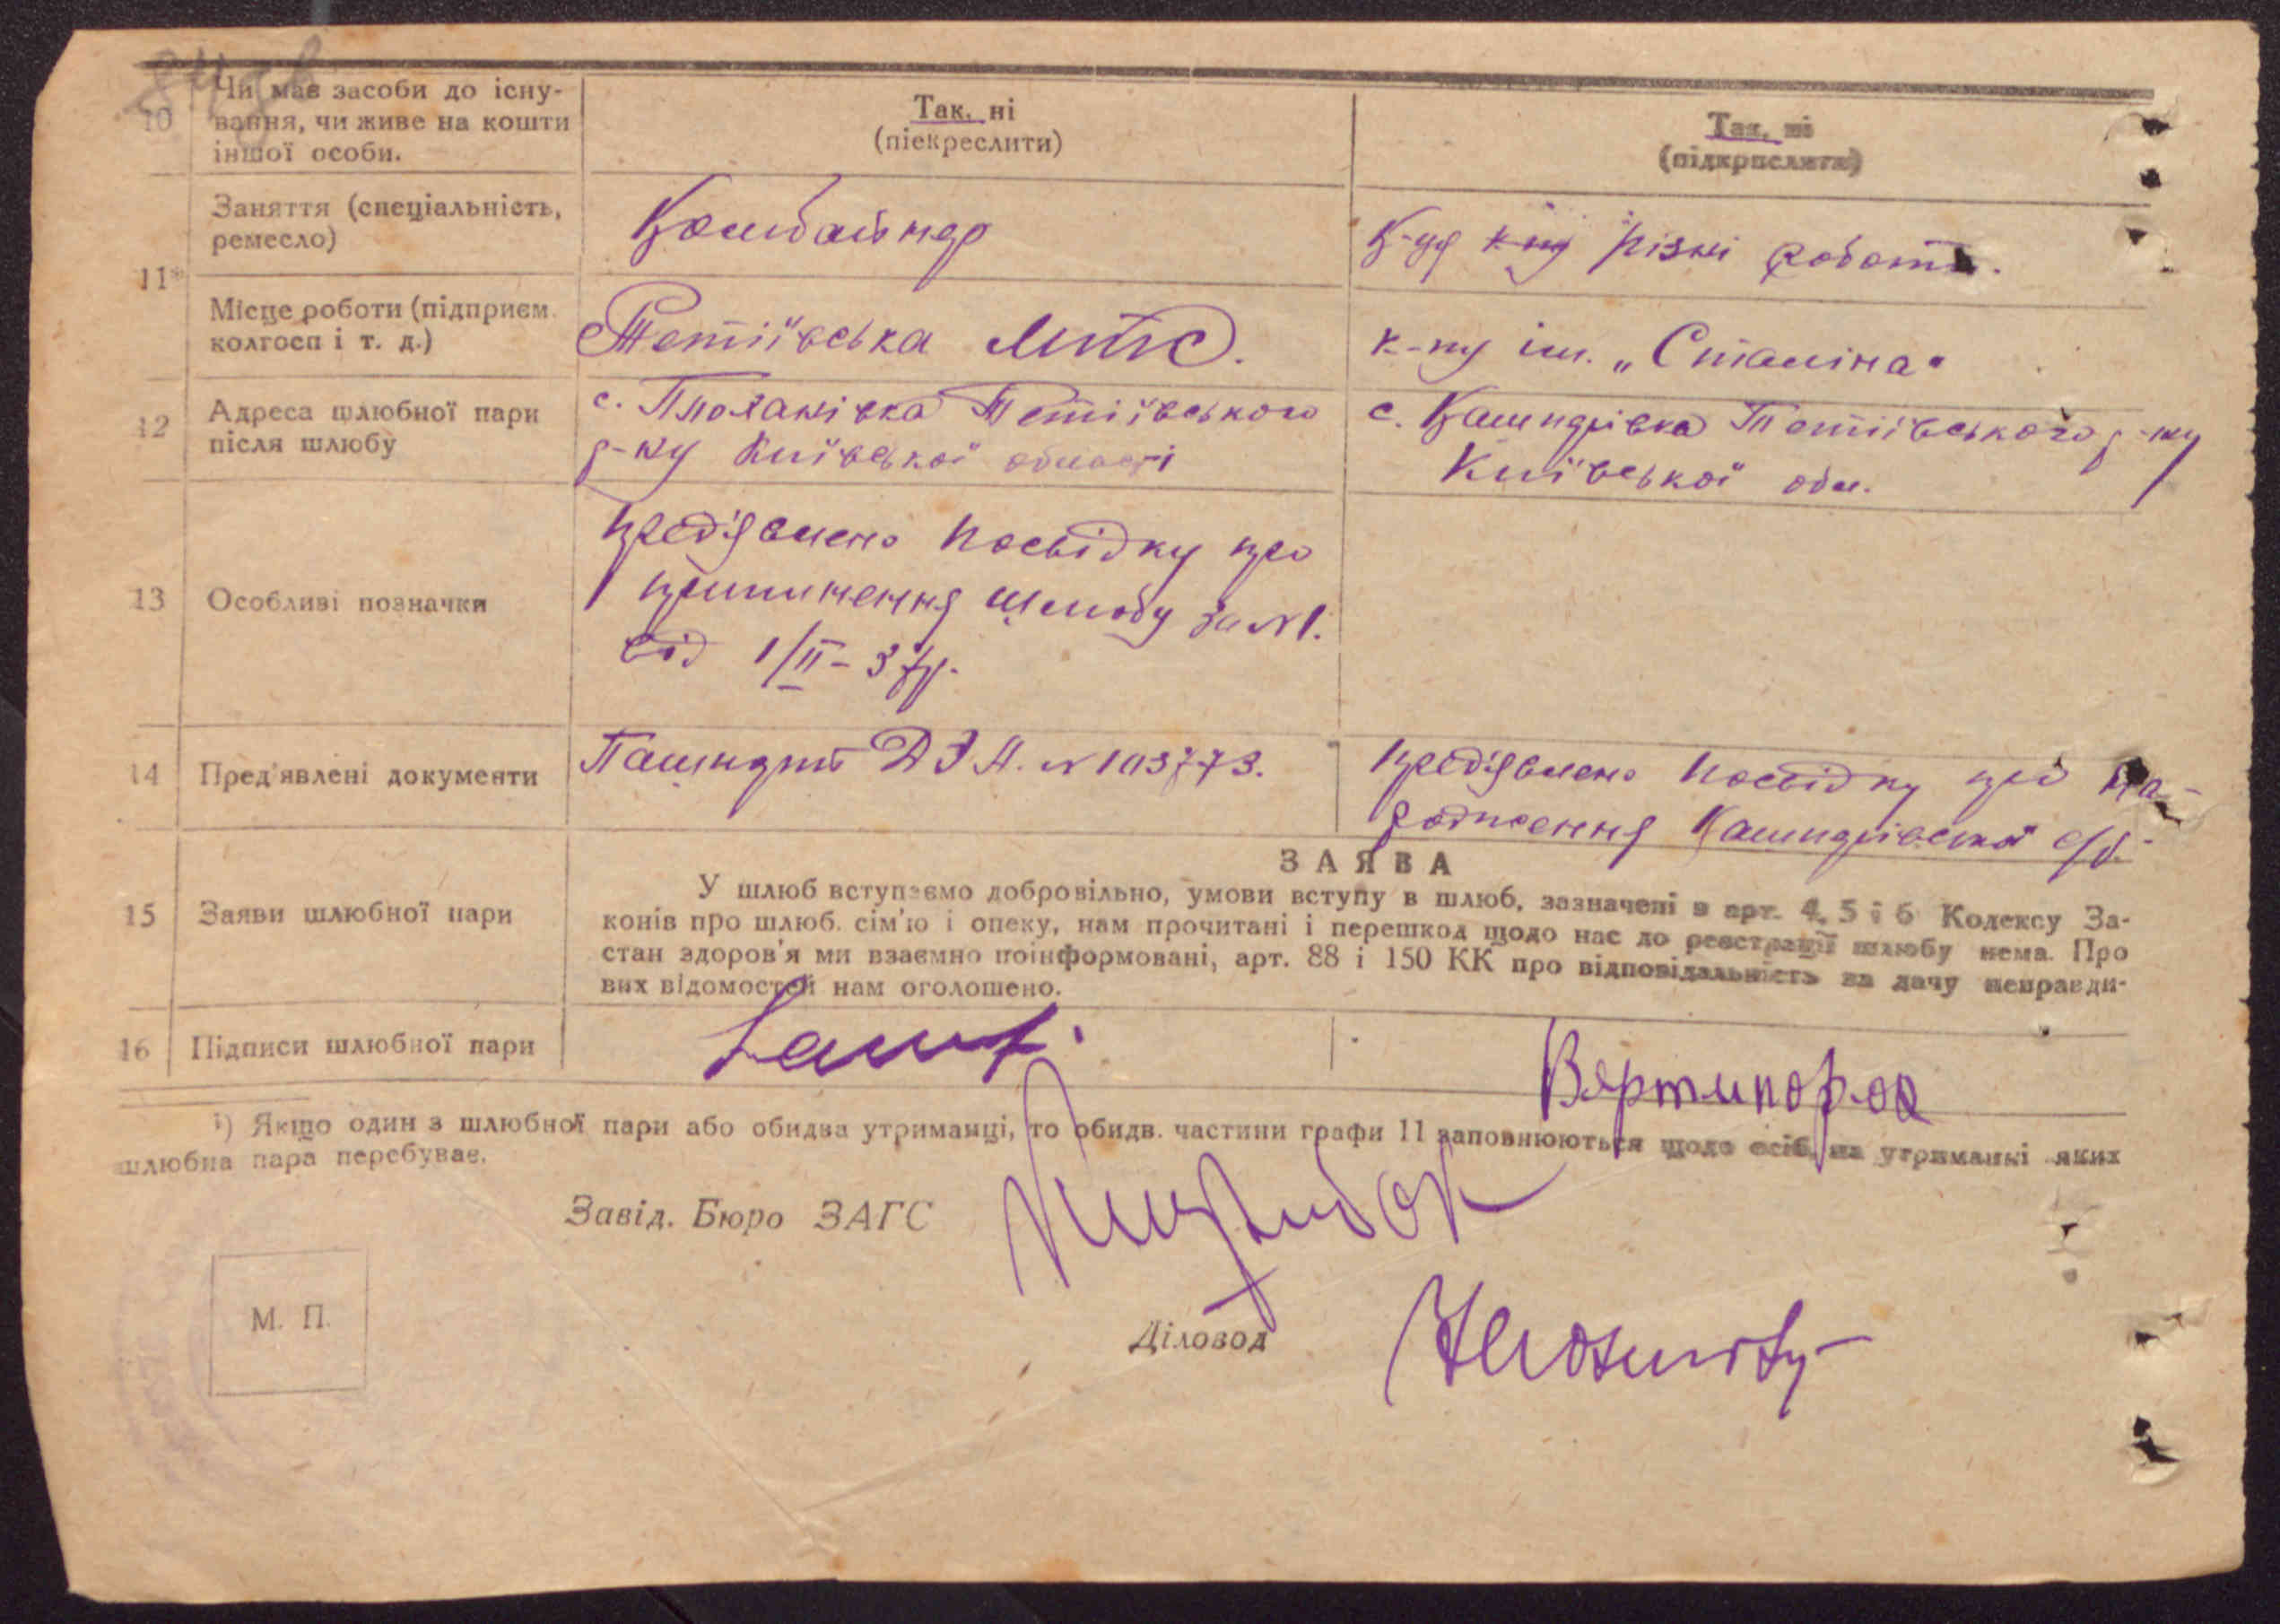 10
Чи має засоби до існу-
вання, чи живе на кошти
іншої особи.
Так, ні
(піекреслити)
Так, ні
(підкрпслити)
11*
Заняття (спеціальність,
ремесло)
Комбайнер
різні роботи.
Місце роботи (підприєм.
колгосп і т. д.)
Тетіївська МТС.
к-пу ім. „Сталіна"
12
Адреса шлюбної пари
після шлюбу
с. Тетіївського
р-ну Київської області
с. Кашперівка Тетіївського р-ну
Київської обл.
13
Особливі позначки
Пред'явлено посвідку про
припинення шлюбу за №1.
від 1/II-37р.
14
Пред'явлені документи
Пашпорт № 103773.
Пред'явлено посвідку про на-
родження Кашперівської с/р.
15
Заяви шлюбної пари
ЗАЯВА
У шлюб вступаємо добровільно, умови вступу в шлюб, зазначені в арт. 4, 5 і 6 Кодексу За-
конів про шлюб. сім'ю і опеку, нам прочитані і перешкод щодо нас до реєстрації шлюбу нема. Про
стан здоров'я ми взаємно поінформовані, арт. 88 і 150 КК про відповідальність за дачу неправди-
вих відомостей нам оголошено.
16
Підписи шлюбної пари
¹) Якщо один з шлюбної пари або обидва утриманці, то обидв. частини графи 11 заповнюються щодо осіб, на утриманкі яких
шлюбна пара перебуває.
Завід. Бюро ЗАГС
М. П.
Діловод